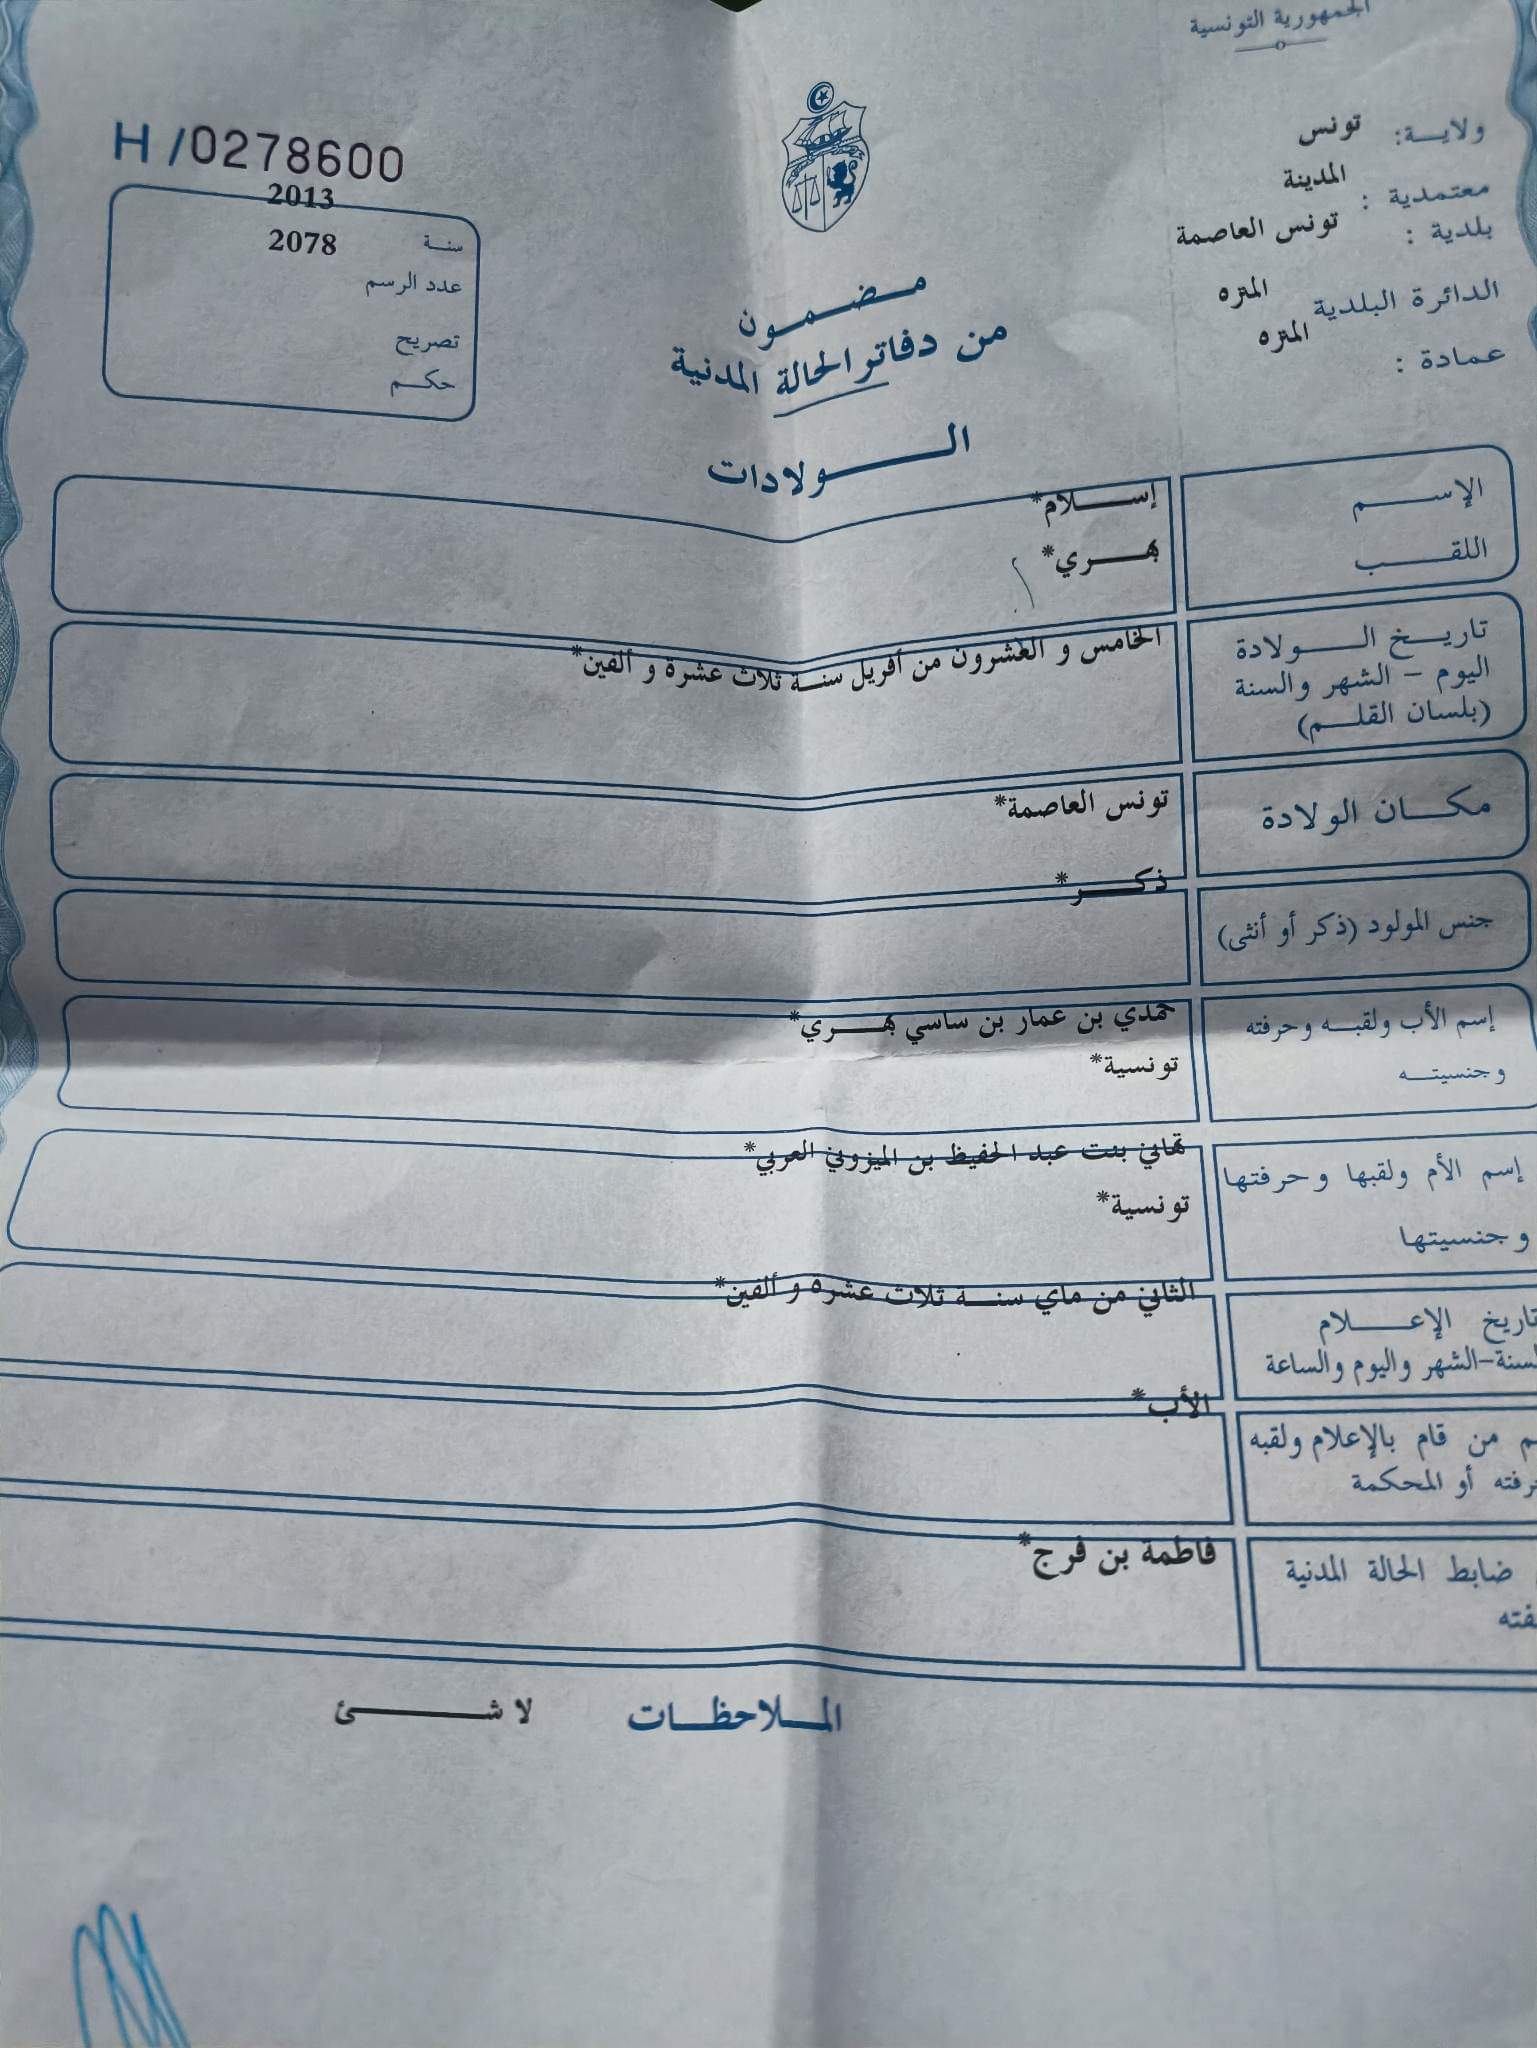 الجمهورية التونسية
ولايــة: تونس
معتمدية : المدينة
بلدية : تونس العاصمة
الدائرة البلدية المتره
عمادة : المتره
H /0278600
2013
سنة 2078
عدد الرسم
تصريح
حكم
مضمون
من دفاتر الحالة المدنية
الولادات
الإسم إسلام*
اللقب بحري*
تاريخ الولادة الخامس و العشرون من أفريل سنة ثلاث عشرة و ألفين*
اليوم - الشهر والسنة
(بلسان القلم)
مكان الولادة تونس العاصمة*
ذكر*
جنس المولود (ذكر أو أنثى)
إسم الأب ولقبه وحرفته حمدي بن عمار بن ساسي بحري*
وجنسيته تونسية*
إسم الأم ولقبها وحرفتها تهاني بنت عبد الحفيظ بن الميزوني العربي*
وجنسيتها تونسية*
الثاني من ماي سنة ثلاث عشرة و ألفين*
تاريخ الإعلام
السنة-الشهر واليوم والساعة
الأب*
من قام بالإعلام ولقبه
أو المحكمة
ضابط الحالة المدنية فاطمة بن فرج*
الملاحظات لا شئ